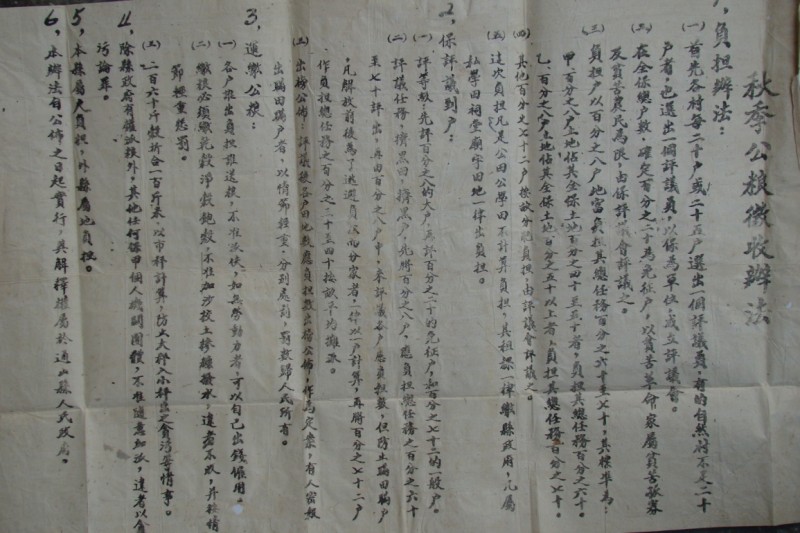 秋季公粮徵收辦法
1、負担辦法：
(一) 首先各村每二十户或二十五户選出一個評議員，有的自然村不足二十
户者，也選出一個評議員，以保為單位，成立評議會。
(二) 在全保總户数，確定百分之二十為免征户，以貧苦革命家屬貧苦孤寡
及貧苦農民為限，由保評議會評議之。
(三) 負担户以百分之八户地富負担其總任務百分之六十至七十，其標準為：
甲、百分之八户土地佔其全保土地百分之四十至五十者，負担其總任務百分之六十。
乙、百分之八户土地佔其全保土地百分之五十以上者，負担其總任務百分之七十。
(四) 其他百分之七十二户按畝分配負担，由評議會評議之。
(五) 這次負担凡是公田公學田不計算負担，其担課一律繳縣政府，凡屬
私學田祠堂廟宇田地一律出負担。
2、保評議到户：
(一) 評等級：先評百分之八的大户，再評百分之二十的免征户，和百分之七十二的一般户。
(二) 評議任務：擠黑田，擠黑户，先將百分之八户，應負担總任務之百分之六十
至七十評出，再由百分之八户中，来評議各户應負担数，但防止瞞田瞞户
，凡解放前後為了逃避負担而分家者，一律以一户計算，再將百分之七十二户
作負担總任務之百分之三十至四十按畝平均攤派。
(三) 出榜公佈：評議後各户田地数應負担数出榜公佈，作為定案，有人密报
出瞞田瞞户者，以情節輕重，分别處罚，罚款歸人民所有。
3、運繳公粮：
(一) 各户派出負担誰送粮，不准派伕，如無勞動力者，可以自己出錢僱用。
(二) 繳谷必須繳乾穀淨穀飽穀，不准加沙投土摻糠撥水，違者不收，并按情
節輕重懲罚。
(三) 二百六十斤穀折合一百斤米，以市秤計算，防止大秤入小秤出之貪污等情事。
4、除縣政府有權派粮外，其他任何保甲個人機關團體，不准随意加派，違者以貪
污論罪。
5、本縣屬人負担，外縣屬地負担。
6、本辦法自公佈之日起實行，其解釋權屬於通山縣人民政府。